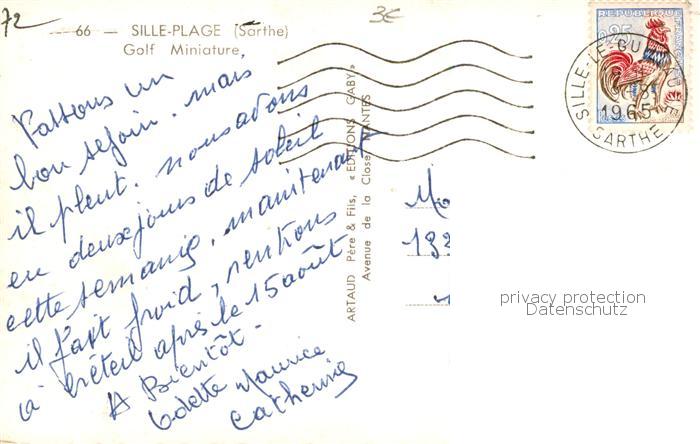 72
3€
66 — SILLE-PLAGE (Sarthe)
Golf Miniature
Passons un
bon sejour. mais
il pleut. nous avons
eu deux jours de soleil
cette semaine, maintenant
il fait froid, rentrons
à Créteil après le 15 août
A Bientôt.
Odette Maurice
Catherine
ARTAUD Père & Fils, « EDITIONS GABY »
Avenue de la Close, NANTES
REPUBLIQUE FRANÇAISE
0,25
SILLE-LE-GUILLAUME
1965
SARTHE
privacy protection
Datenschutz